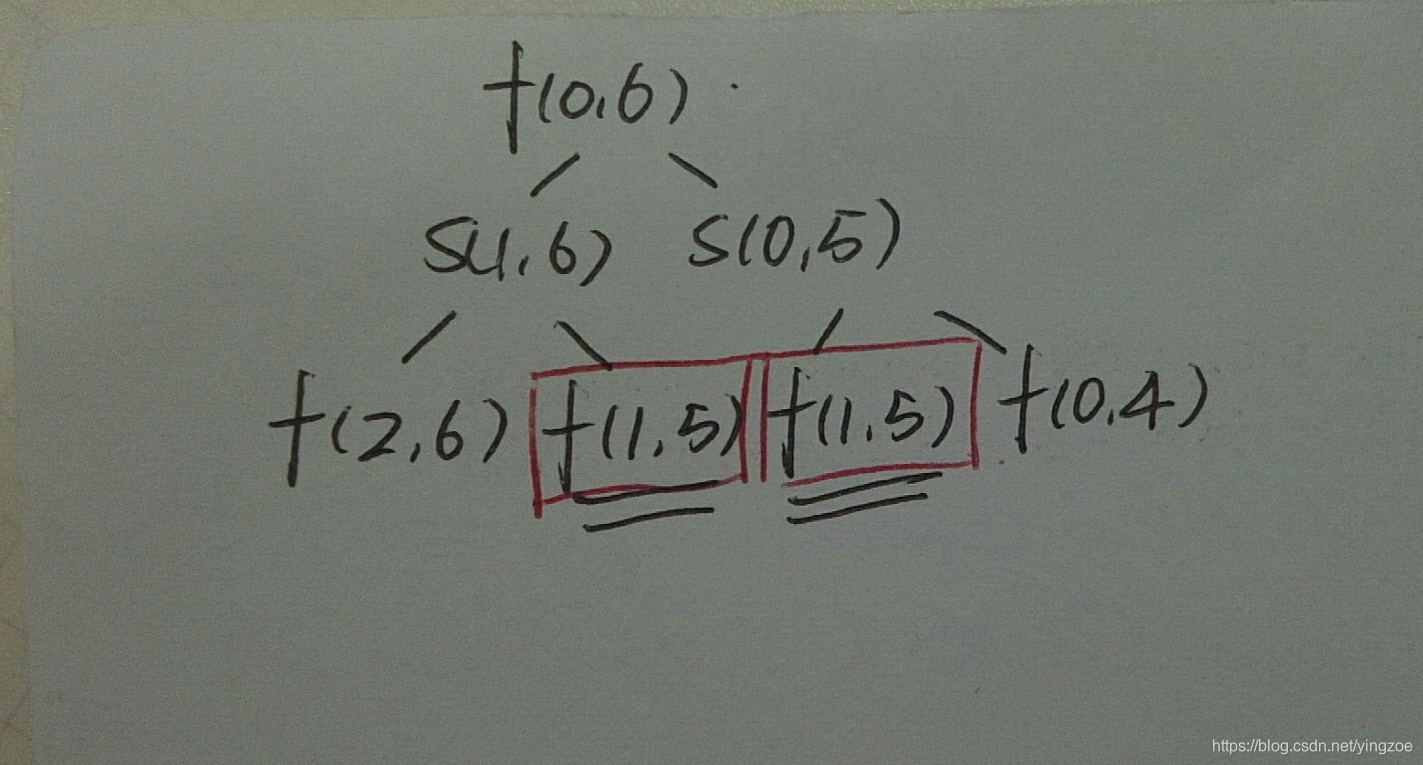 f(0,6)
S(1,6) S(0,5)
f(2,6) f(1,5) f(1,5) f(0,4)
https://blog.csdn.net/yingzoe